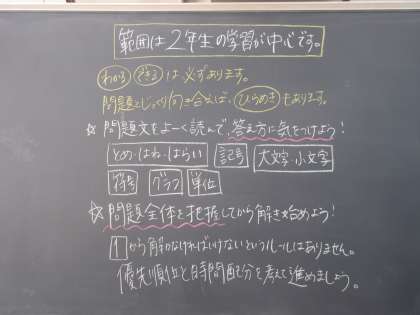 範囲は2年生の学習が中心です。
わかる できる は必ずあります。
問題とじっくり向き合えば、ひらめきもあります。
☆問題文をよーく読んで、答え方に気をつけよう!
とめ・はね・はらい 記号 大文字・小文字
符号 グラフ 単位
☆問題全体を把握してから解き始めよう!
1から解かなければいけないというルールはありません。
優先順位と時間配分を考えて進めましょう。